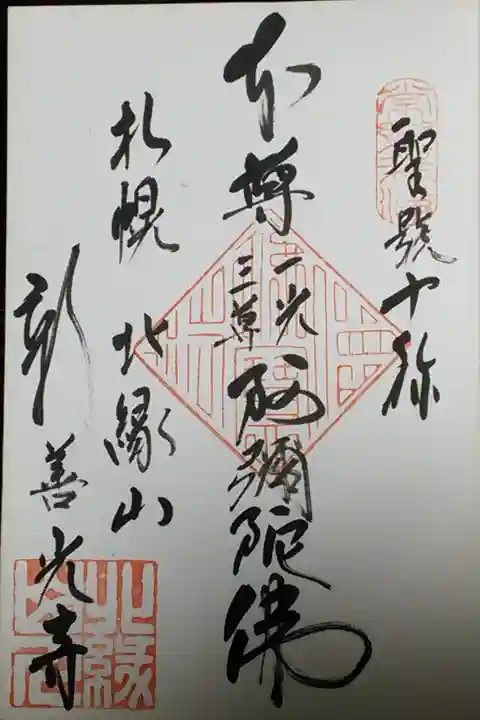 聖號十称
本尊一光三尊阿彌陀佛
札幌北縁山
新善光寺
北縁山